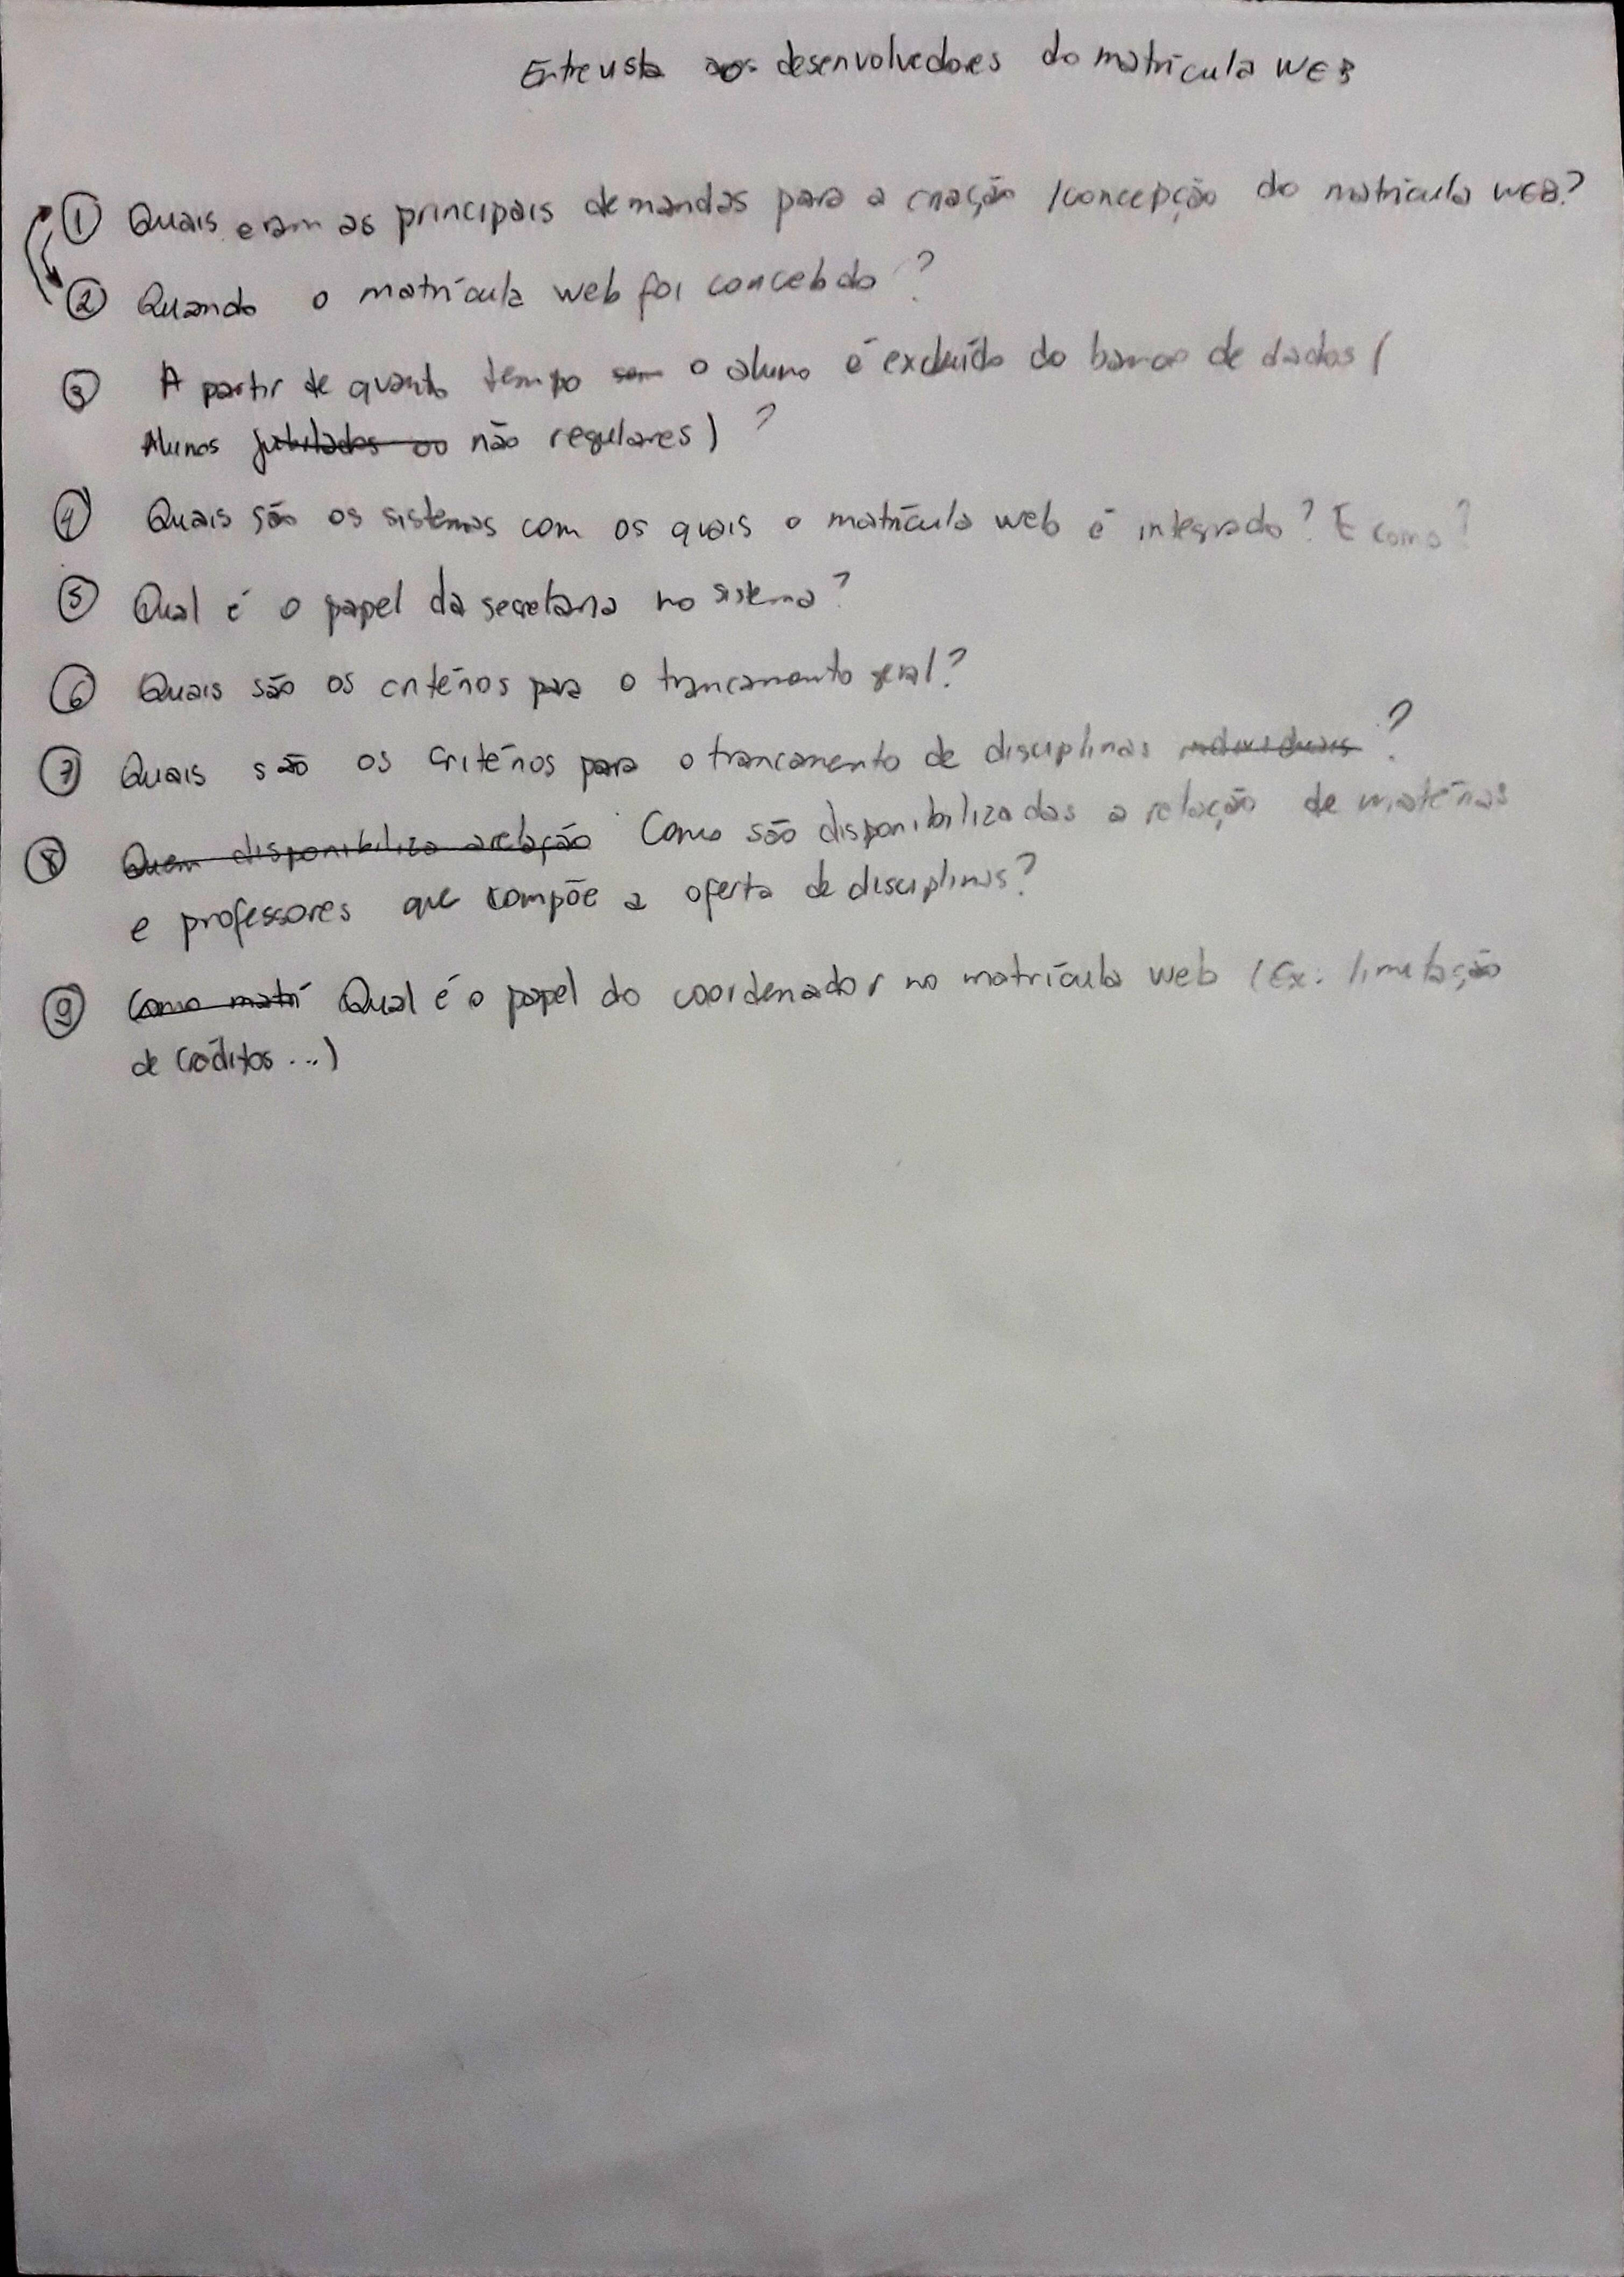 Entrevista aos desenvolvedores do matrícula WEB
① Quais eram as principais demandas para a criação /concepção do matrícula WEB?
② Quando o matrícula web foi concebdo ?
③ A partir de quanto tempo sem o aluno é excluído do banco de dados (
Alunos jubilados ou não regulares) ?
④ Quais são os sistemas com os quais o matrícula web é integrado? E como?
⑤ Qual é o papel da secretaria no sistema?
⑥ Quais são os critérios para o trancamento geral?
⑦ Quais são os critérios para o trancamento de disciplinas individuais ?
⑧ Quem disponibiliza a relação Como são disponibilizadas a relação de matérias
e professores que compõe a oferta de disciplinas?
⑨ Como matrí Qual é o papel do coordenador no matrícula web (Ex: limitação
de créditos ...)